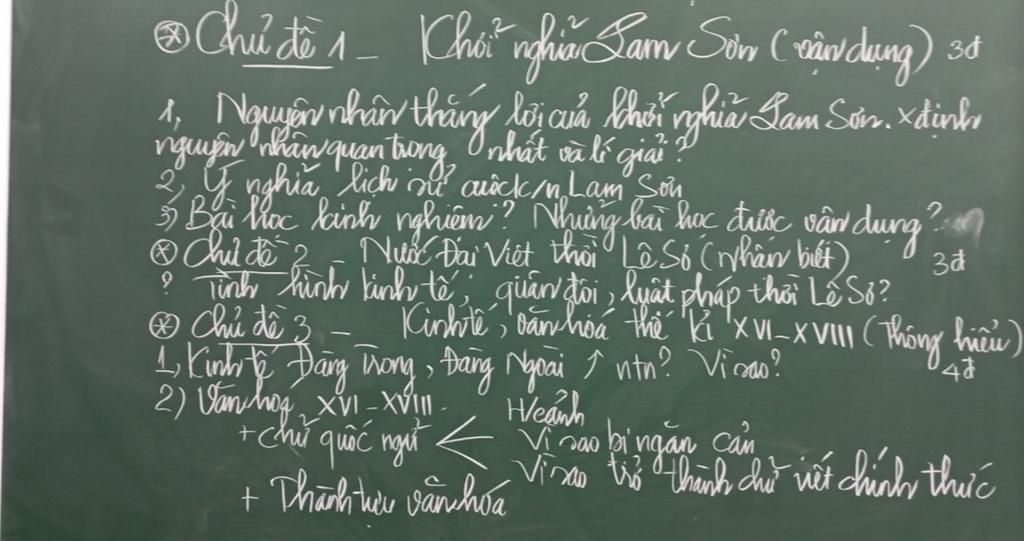 ⊛ Chủ đề 1 - Khởi nghĩa Lam Sơn (vận dụng) 3đ
1, Nguyên nhân thắng lợi của khởi nghĩa Lam Sơn. x định
nguyên nhân quan trọng nhất và lí giải?
2, Ý nghĩa lịch sử cuộc k/n Lam Sơn
3) Bài học kinh nghiệm? Những bài học được vận dụng?
⊛ Chủ đề 2 - Nước Đại Việt thời Lê Sơ (nhận biết) 3đ
? Tình hình kinh tế, quân đội, luật pháp thời Lê Sơ?
⊛ Chủ đề 3 - Kinh tế, văn hoá thế kỉ XVI-XVIII (thông hiểu) 4đ
1, Kinh tế Đàng Trong, Đàng Ngoài ↑ ntn? Vì sao?
2) Văn hoá XVI-XVIII.
+ chữ quốc ngữ < H/cảnh
Vì sao bị ngăn cản
Vì sao trở thành chữ viết chính thức
+ Thành tựu văn hoá